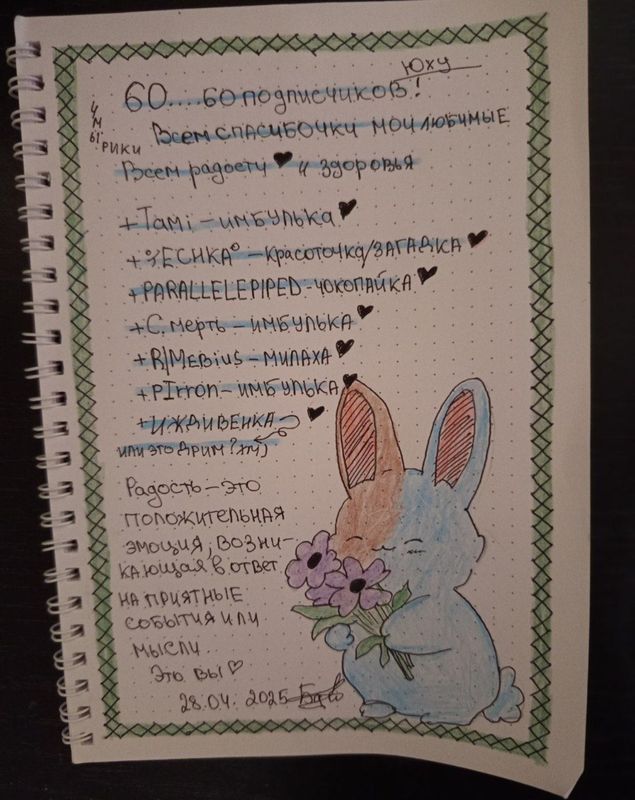 ЮХУ
60....60 подписчиков!
ЧМЫРИКИ
Всем спасибочки мои любимые
Всем радости ♥ и здоровья
+Tami – имбулька ♥
+°ZECHKA° – красоточка/ЗАГАДКА ♥
+PARALLELEPIPED – чокопайка ♥
+С.мерть – имбулька ♥
+R/Mebius – милаха ♥
+PIrron – имбулька ♥
+Иждивенка ♥
или это Дрим?
Радость – это
положительная
эмоция, возни-
кающая в ответ
на приятные
события или
мысли
Это вы ♡
28.04.2025